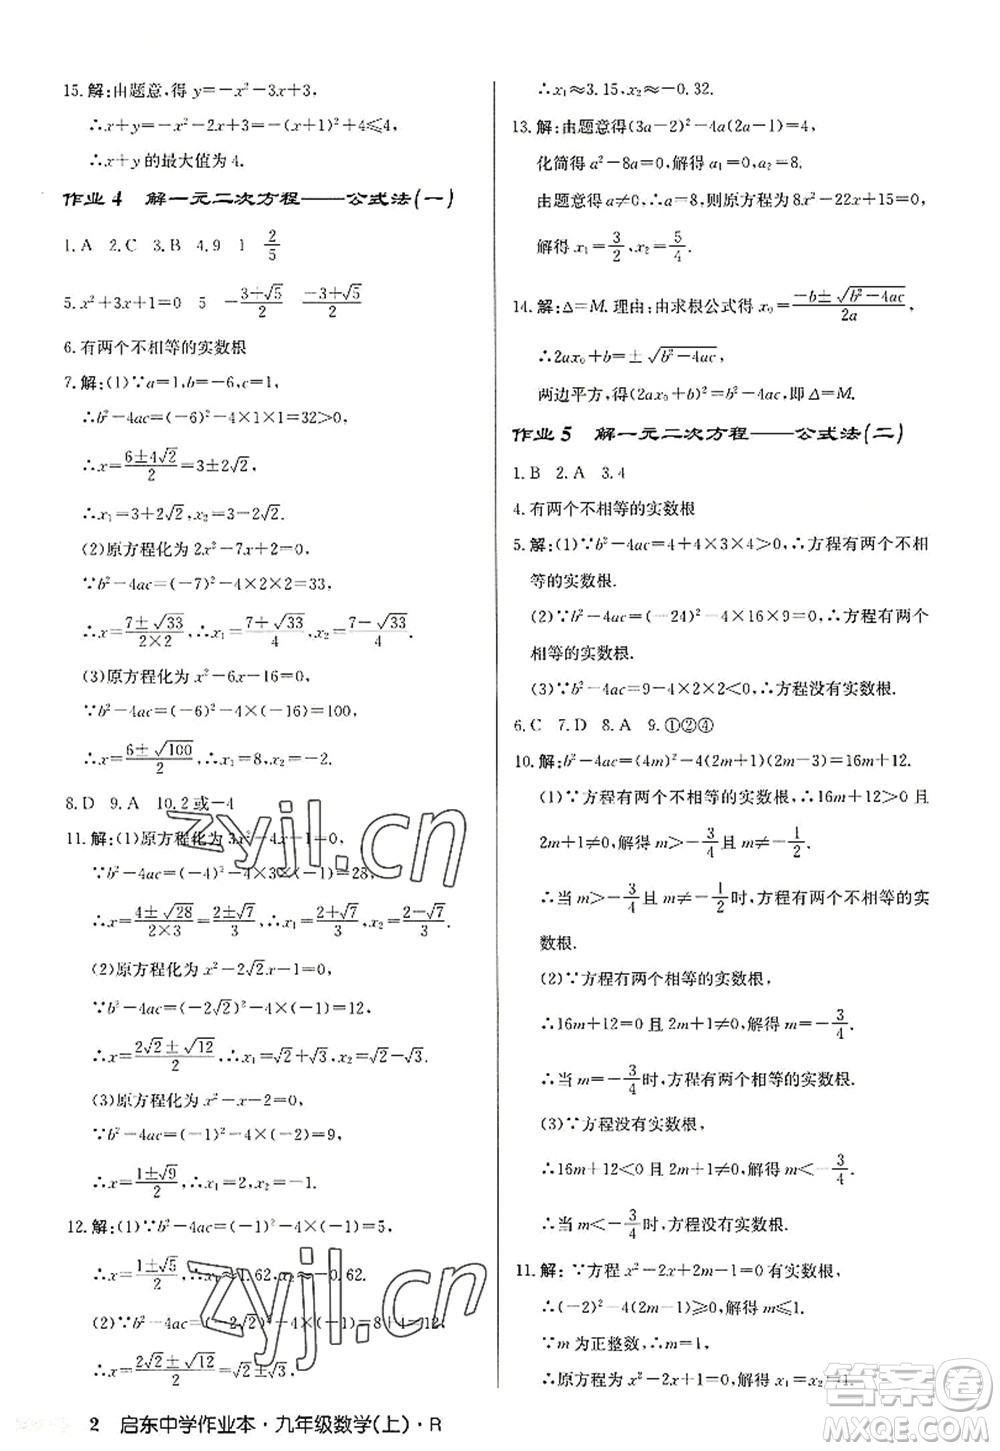 15. 解:由题意,得 y=-x²-3x+3,
∴x+y=-x²-2x+3=-(x+1)²+4≤4,
∴x+y 的最大值为 4.
作业 4 解一元二次方程——公式法(一)
1. A 2. C 3. B 4. 9 1 2/5
5. x²+3x+1=0 5 -(3+√5)/2 (-3+√5)/2
6. 有两个不相等的实数根
7. 解:(1)∵a=1,b=-6,c=1,
∴b²-4ac=(-6)²-4×1×1=32>0,
∴x=(6±4√2)/2=3±2√2,
∴x₁=3+2√2,x₂=3-2√2.
(2)原方程化为 2x²-7x+2=0,
∵b²-4ac=(-7)²-4×2×2=33,
∴x=(7±√33)/(2×2),∴x₁=(7+√33)/4,x₂=(7-√33)/4.
(3)原方程化为 x²-6x-16=0,
∵b²-4ac=(-6)²-4×(-16)=100,
∴x=(6±√100)/2,∴x₁=8,x₂=-2.
8. D 9. A 10. 2 或-4
11. 解:(1)原方程化为 3x²-4x-1=0,
∵b²-4ac=(-4)²-4×3×(-1)=28,
∴x=(4±√28)/(2×3)=(2±√7)/3,∴x₁=(2+√7)/3,x₂=(2-√7)/3.
(2)原方程化为 x²-2√2x-1=0,
∵b²-4ac=(-2√2)²-4×(-1)=12,
∴x=(2√2±√12)/2,∴x₁=√2+√3,x₂=√2-√3.
(3)原方程化为 x²-x-2=0,
∵b²-4ac=(-1)²-4×(-2)=9,
∴x=(1±√9)/2,∴x₁=2,x₂=-1.
12. 解:(1)∵b²-4ac=(-1)²-4×(-1)=5,
∴x=(1±√5)/2,∴x₁≈1.62,x₂≈-0.62.
(2)∵b²-4ac=(-2√2)²-4×(-1)=8+4=12,
∴x=(2√2±√12)/2=√2±√3,
∴x₁≈3.15,x₂≈-0.32.
13. 解:由题意得(3a-2)²-4a(2a-1)=4,
化简得 a²-8a=0,解得 a₁=0,a₂=8.
由题意得 a≠0,∴a=8,则原方程为 8x²-22x+15=0,
解得 x₁=3/2,x₂=5/4.
14. 解:Δ=M. 理由:由求根公式得 x₀=(-b±√(b²-4ac))/2a,
∴2ax₀+b=±√(b²-4ac),
两边平方,得(2ax₀+b)²=b²-4ac,即 Δ=M.
作业 5 解一元二次方程——公式法(二)
1. B 2. A 3. 4
4. 有两个不相等的实数根
5. 解:(1)∵b²-4ac=4+4×3×4>0,∴方程有两个不相
等的实数根.
(2)∵b²-4ac=(-24)²-4×16×9=0,∴方程有两个
相等的实数根.
(3)∵b²-4ac=9-4×2×2<0,∴方程没有实数根.
6. C 7. D 8. A 9. ①②④
10. 解:b²-4ac=(4m)²-4(2m+1)(2m-3)=16m+12.
(1)∵方程有两个不相等的实数根,∴16m+12>0 且
2m+1≠0,解得 m>-3/4且 m≠-1/2,
∴当 m>-3/4且 m≠-1/2时,方程有两个不相等的实
数根.
(2)∵方程有两个相等的实数根,
∴16m+12=0 且 2m+1≠0,解得 m=-3/4.
∴当 m=-3/4时,方程有两个相等的实数根.
(3)∵方程没有实数根,
∴16m+12<0 且 2m+1≠0,解得 m<-3/4,
∴当 m<-3/4时,方程没有实数根.
11. 解:∵方程 x²-2x+2m-1=0 有实数根,
∴(-2)²-4(2m-1)≥0,解得 m≤1.
∵m 为正整数,∴m=1,
∴原方程为 x²-2x+1=0,解得 x₁=x₂=1.
2 启东中学作业本·九年级数学(上)·R
zyjl.cn
zyjl.cn
答案圈
MXQE.COM